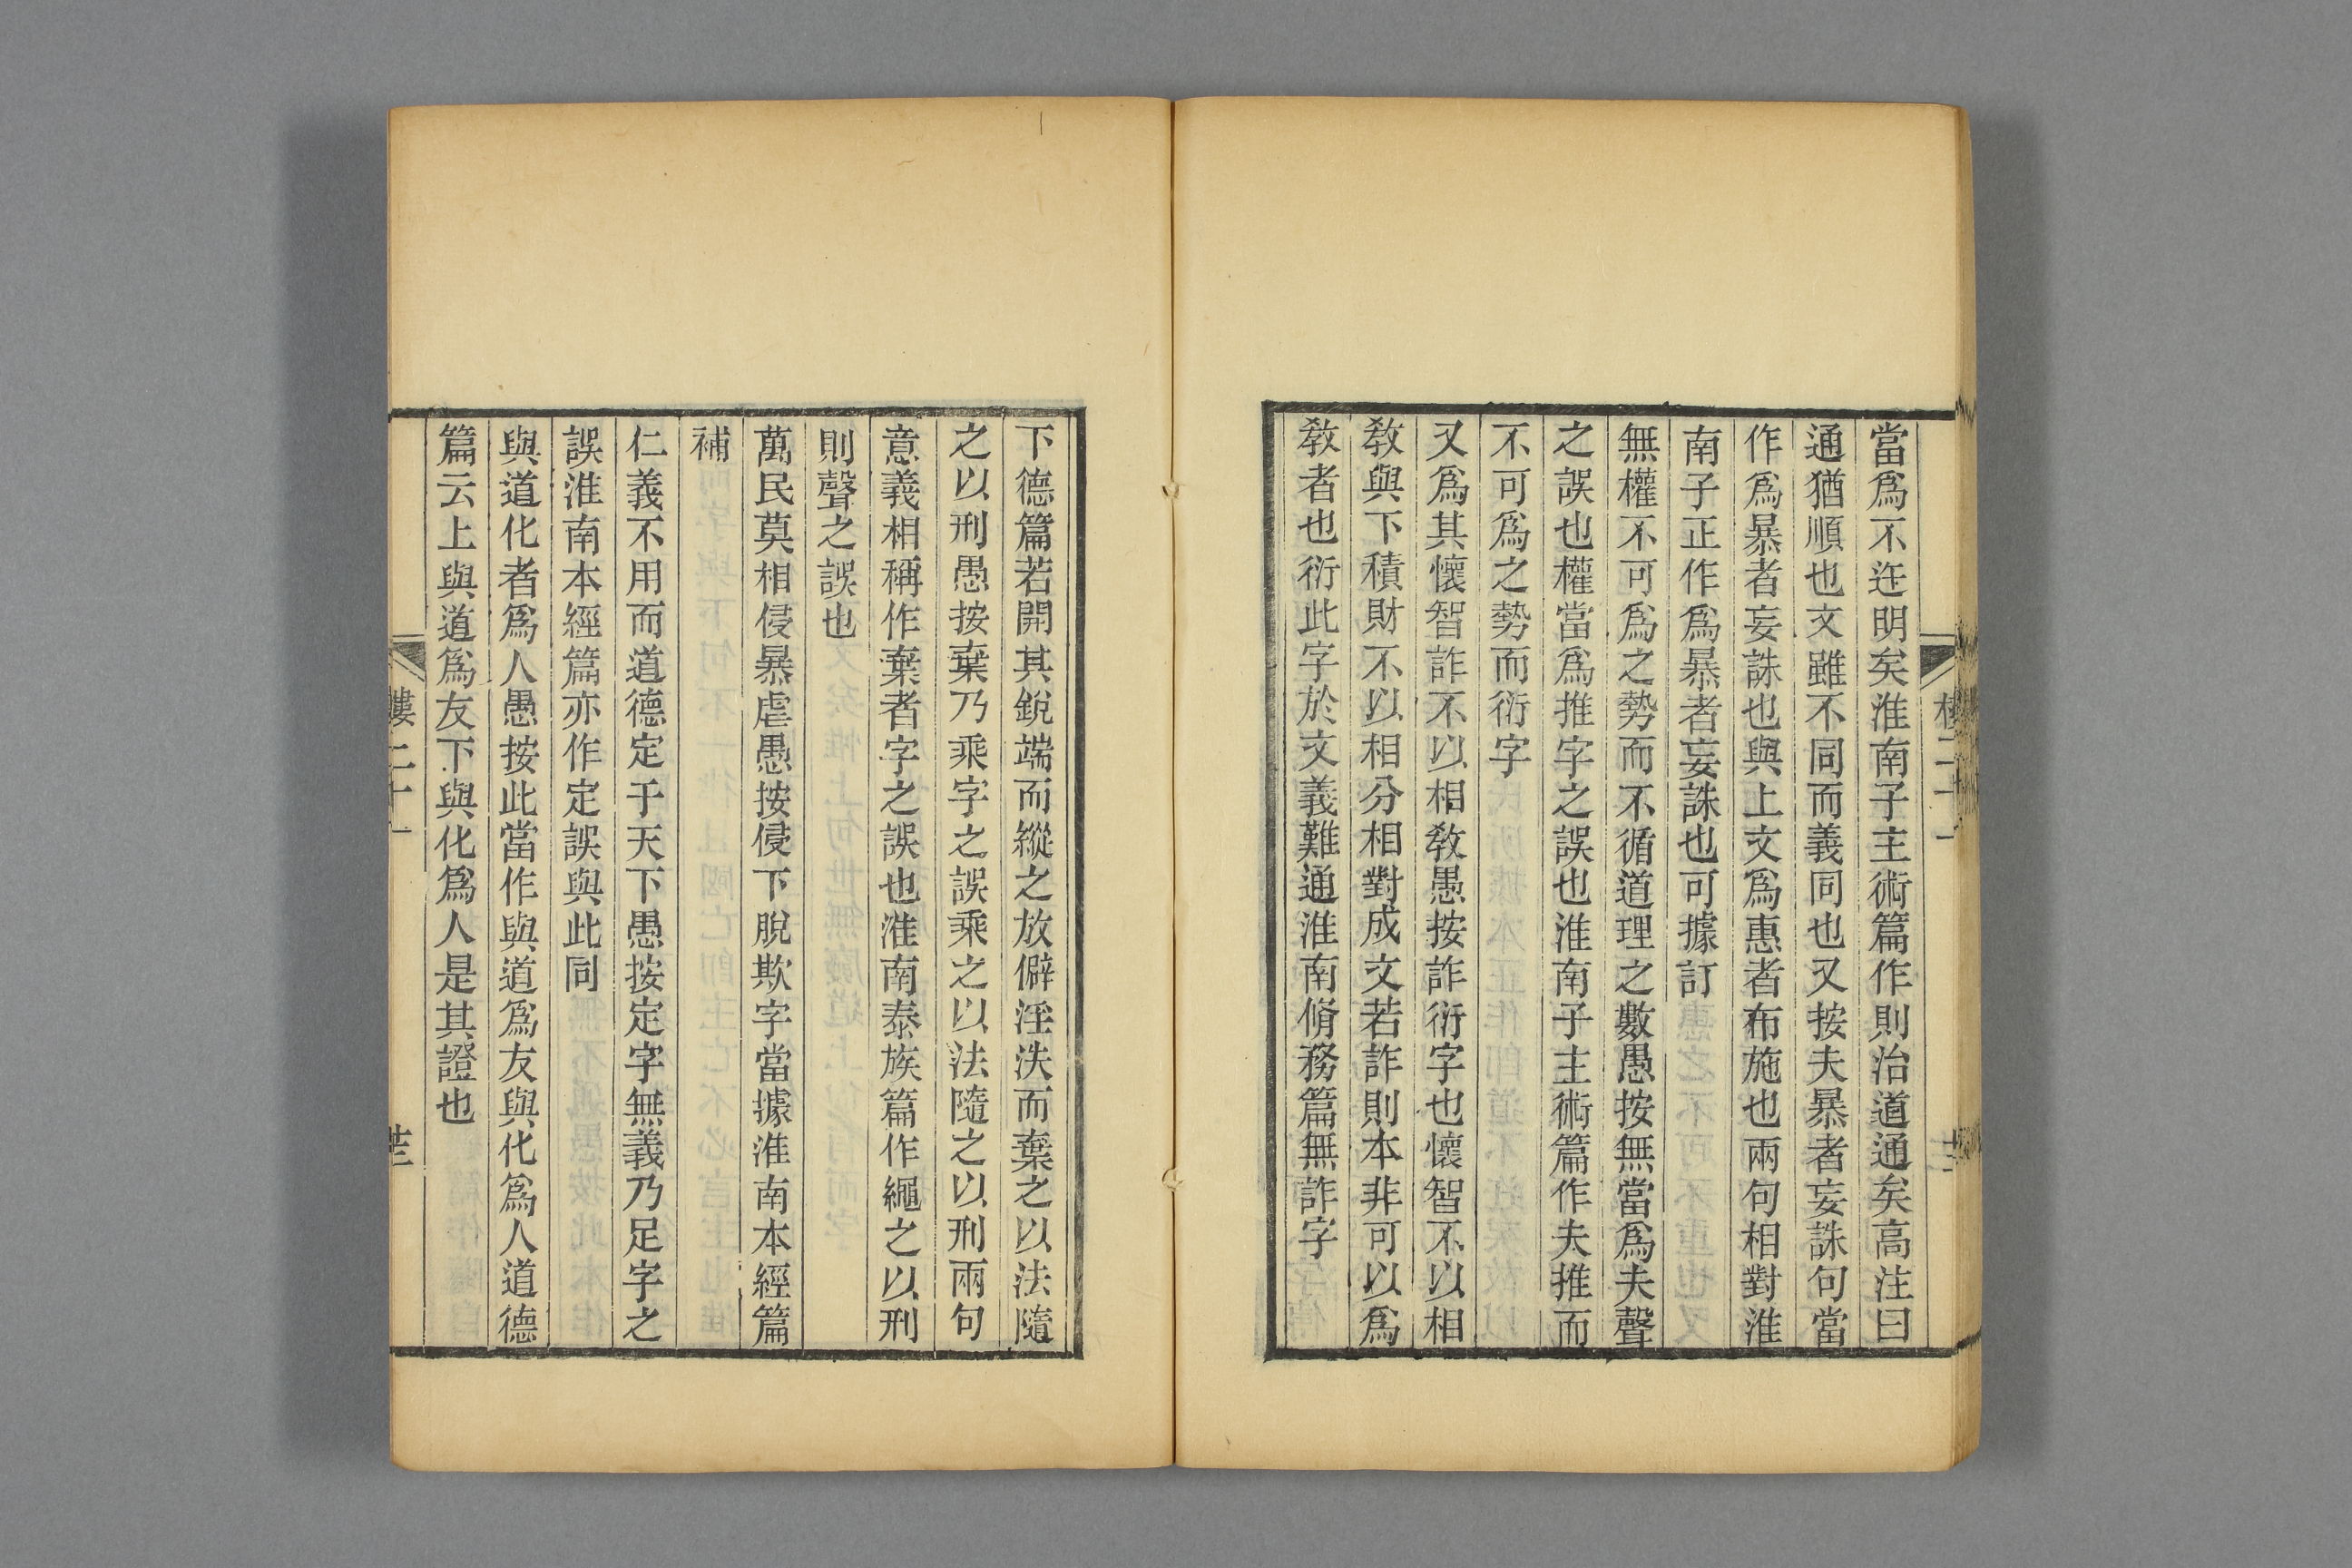 當爲不迕明矣淮南子主術篇作則治道通矣高注曰
通猶順也文雖不同而義同也又按夫暴者妄誅句當
作爲暴者妄誅也與上文爲惠者布施也兩句相對淮
南子正作爲暴者妄誅也可據訂
無權不可爲之勢而不循道理之數愚按無當爲夫聲
之誤也權當爲推字之誤也淮南子主術篇作夫推而
不可爲之勢而衍字
又爲其懷智詐不以相敎愚按詐衍字也懷智不以相
敎與下積財不以相分相對成文若詐則本非可以爲
敎者也衍此字於文義難通淮南脩務篇無詐字
下德篇若開其銳端而縱之放僻淫泆而棄之以法隨
之以刑愚按棄乃乘字之誤乘之以法隨之以刑兩句
意義相稱作棄者字之誤也淮南泰族篇作繩之以刑
則聲之誤也
萬民莫相侵暴虐愚按侵下脫欺字當據淮南本經篇
補
仁義不用而道德定于天下愚按定字無義乃足字之
誤淮南本經篇亦作定誤與此同
與道化者爲人愚按此當作與道爲友與化爲人道德
篇云上與道爲友下與化爲人是其證也
樓二十一